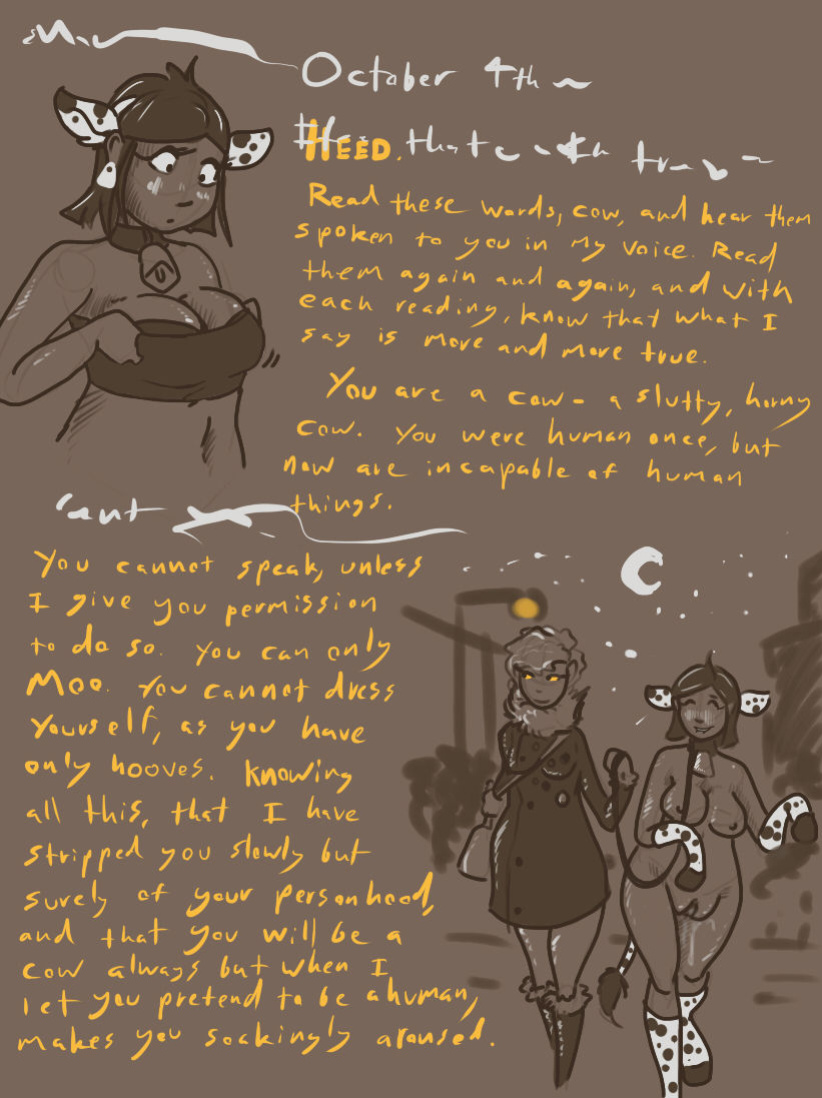 October 4th ~
HEED. that
Read these words, cow, and hear them
spoken to you in my voice. Read
them again and again, and with
each reading, know that what I
say is more and more true.
You are a cow - a slutty, horny
cow. You were human once, but
now are incapable of human
things.
You cannot speak, unless
I give you permission
to do so. You can only
Moo. You cannot dress
yourself, as you have
only hooves. Knowing
all this, that I have
stripped you slowly but
surely of your personhood,
and that you will be a
cow always but when I
let you pretend to be a human,
makes you sockingly aroused.